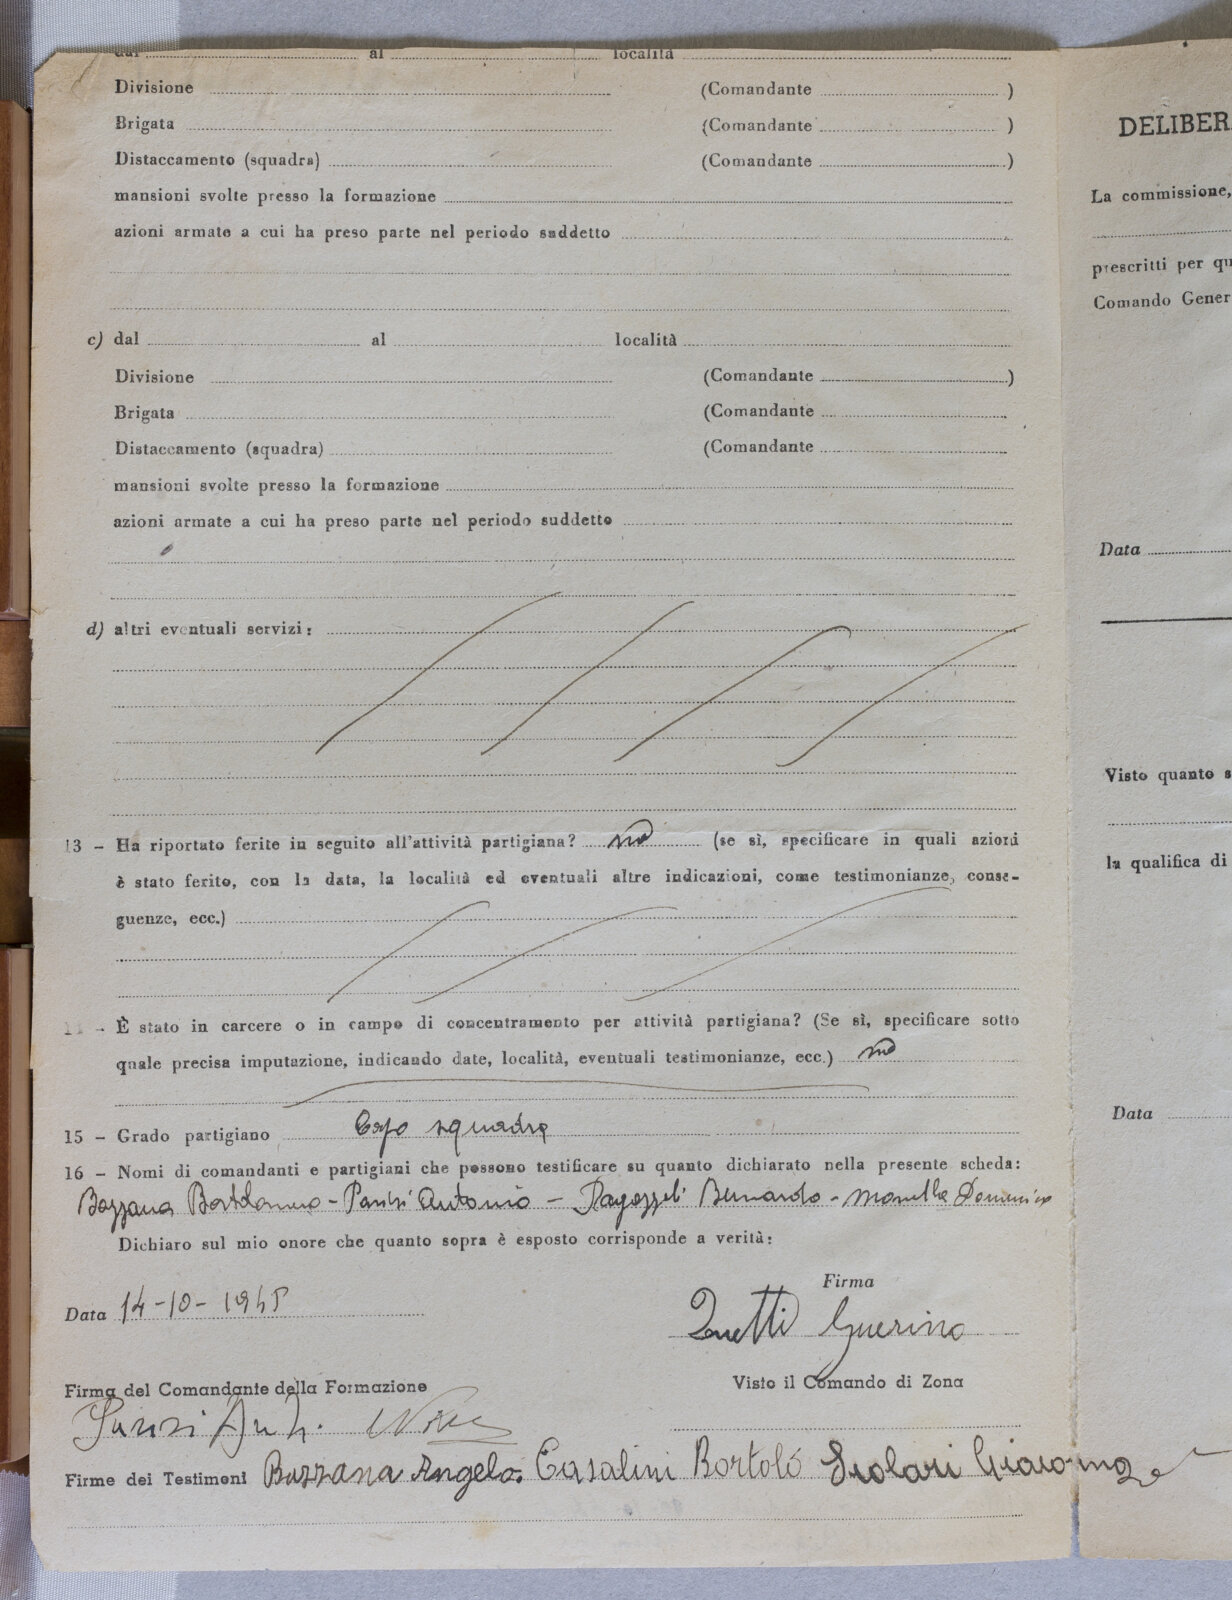 dal al località
Divisione (Comandante )
Brigata (Comandante )
Distaccamento (squadra) (Comandante )
mansioni svolte presso la formazione
azioni armate a cui ha preso parte nel periodo suddetto
c) dal al località
Divisione (Comandante )
Brigata (Comandante
Distaccamento (squadra) (Comandante
mansioni svolte presso la formazione
azioni armate a cui ha preso parte nel periodo suddetto
d) altri eventuali servizi:
13 - Ha riportato ferite in seguito all'attività partigiana? no (se sì, specificare in quali azioni
è stato ferito, con la data, la località ed eventuali altre indicazioni, come testimonianze, conse-
guenze, ecc.)
- È stato in carcere o in campo di concentramento per attività partigiana? (Se sì, specificare sotto
quale precisa imputazione, indicando date, località, eventuali testimonianze, ecc.) no
15 - Grado partigiano Capo squadra
16 - Nomi di comandanti e partigiani che possono testificare su quanto dichiarato nella presente scheda:
Bazzana Bortolomeo - Parisi Antonio - Ragazzoli Bernardo - Domenico
Dichiaro sul mio onore che quanto sopra è esposto corrisponde a verità:
Firma
Data 14-10-1945
Zuetti Guerino
Firma del Comandante della Formazione
Visto il Comando di Zona
Firme dei Testimoni Bazzana Angelo Casalini Bortolo Scolari Giacomo
DELIBER
La commissione,
prescritti per qu
Comando Gener
Data
Visto quanto s
la qualifica di
Data